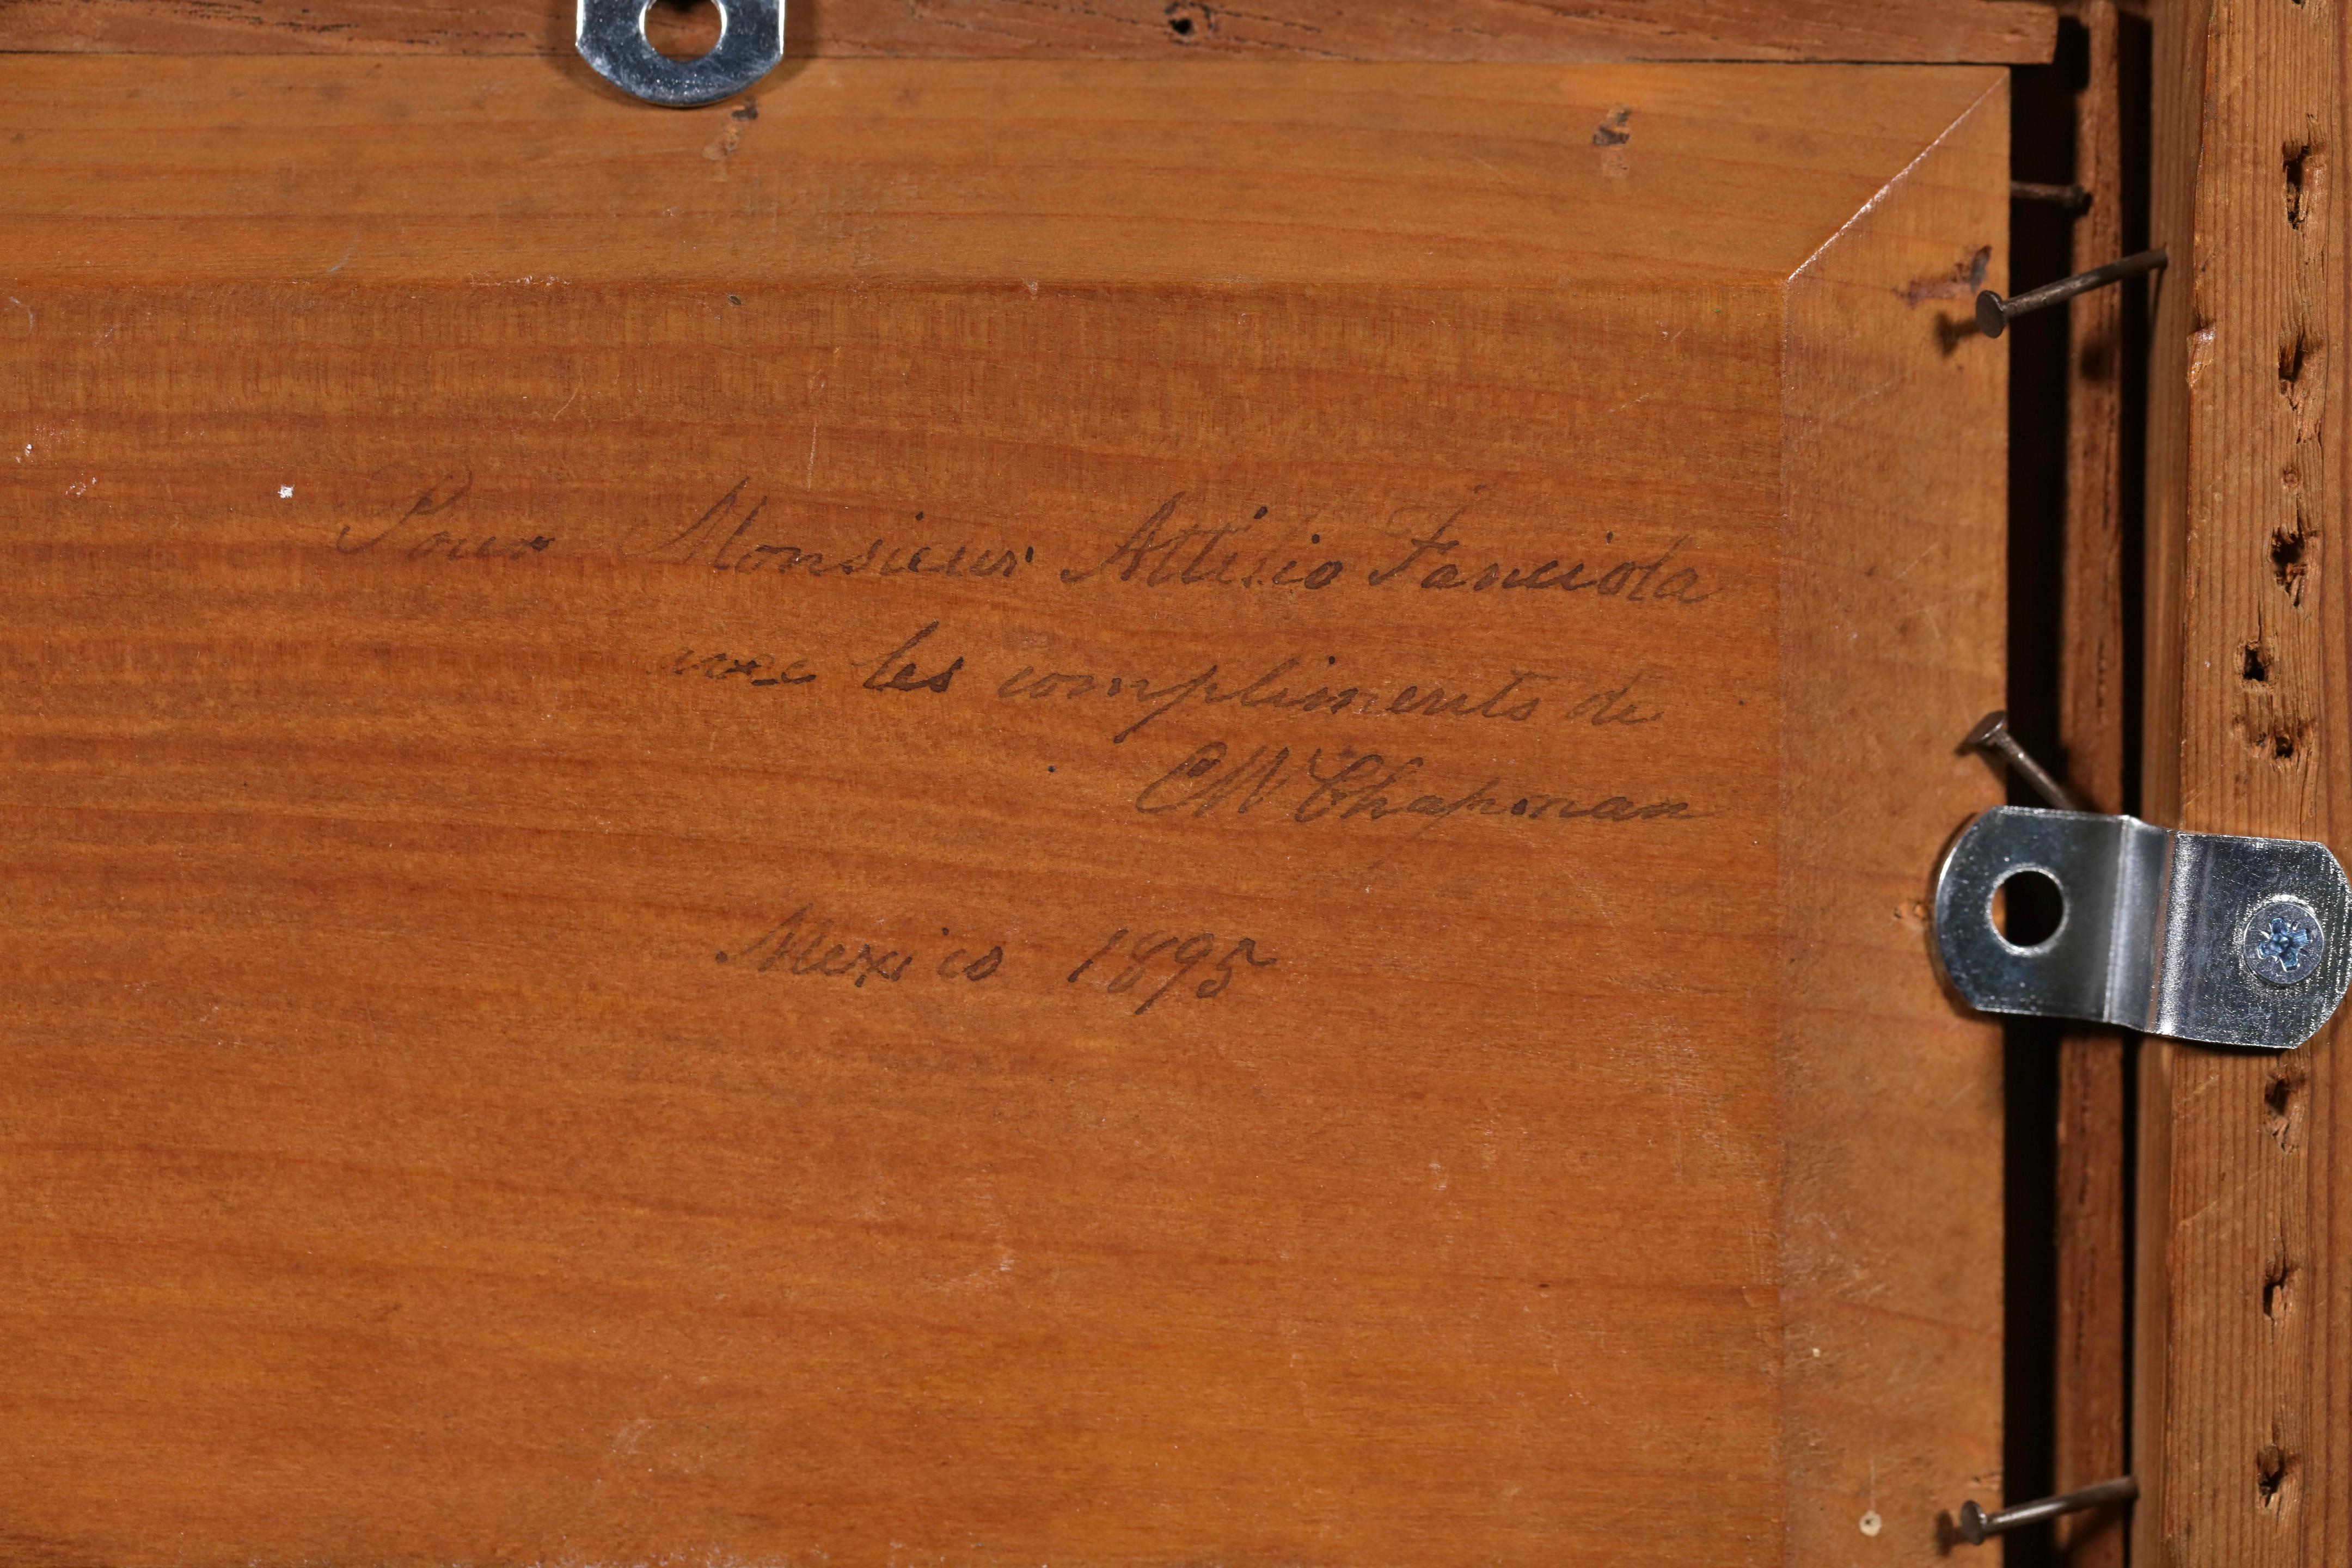 Pour Monsieur Attilio Fanciola
avec les compliments de
CW Chapman
Mexico 1895